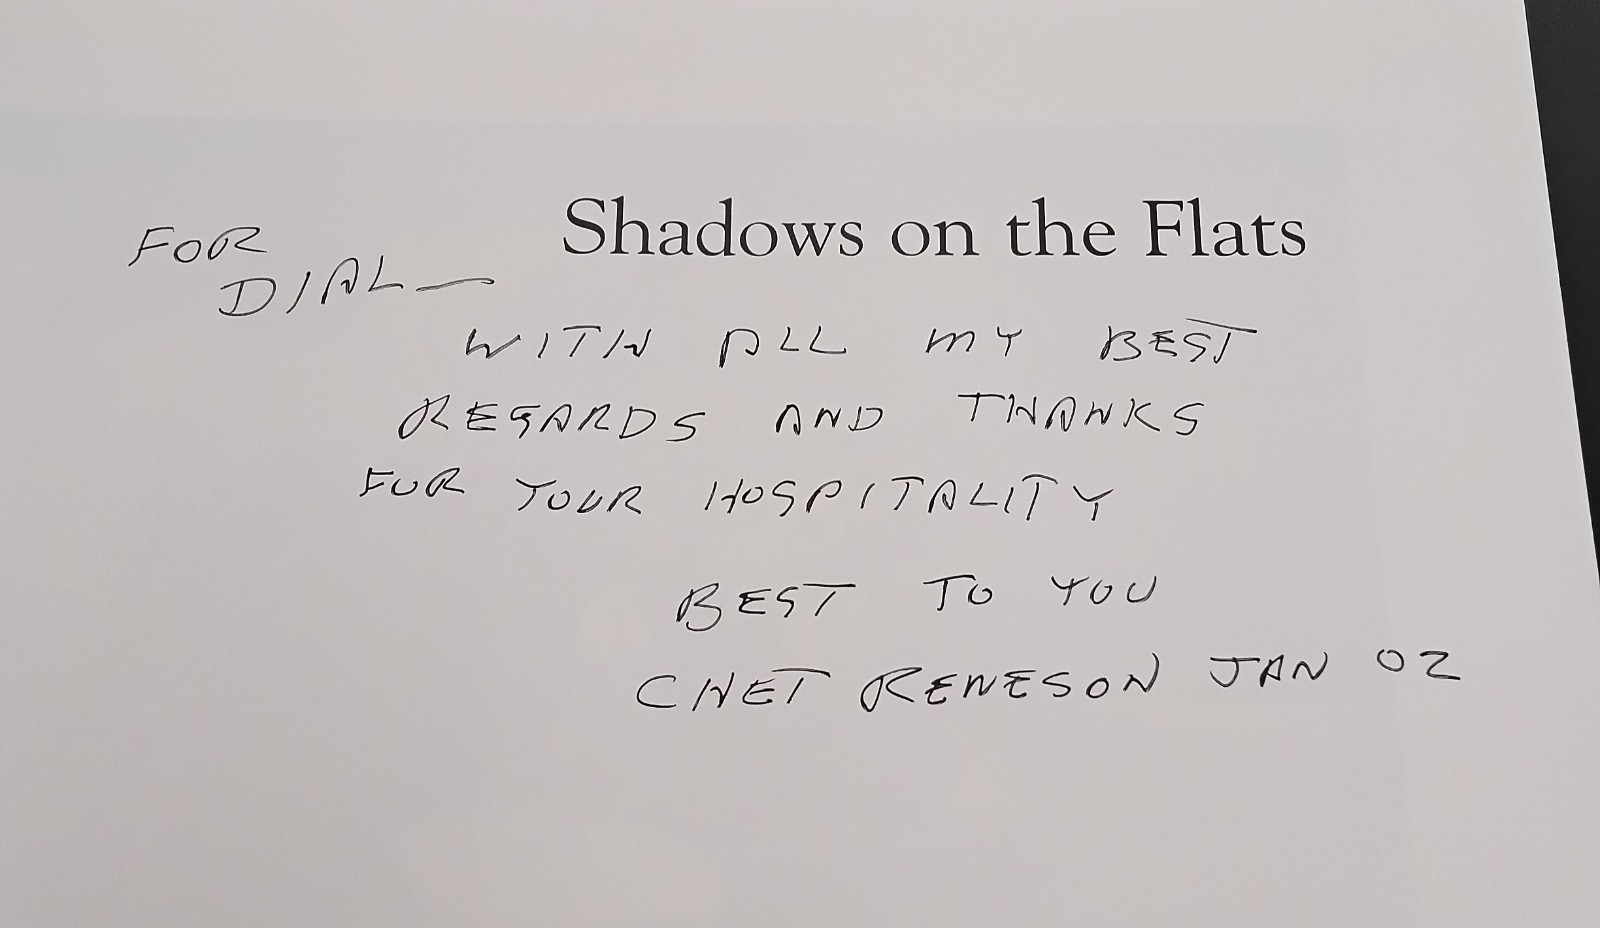 Shadows on the Flats
FOR
DIAL—
WITH ALL MY BEST
REGARDS AND THANKS
FOR YOUR HOSPITALITY
BEST TO YOU
CHET RENESON JAN 02